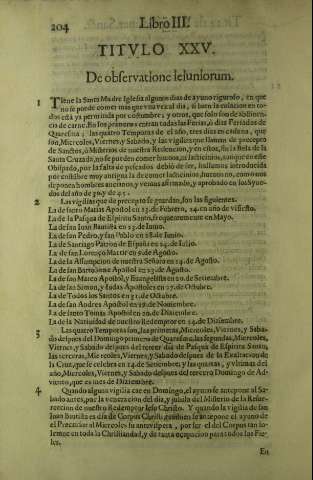 204 Libro III.
TITVLO XXV.
De obseruatione Ieiuniorum.
1 Tiene la Santa Madre Iglesia algunos dias de ayuno riguroso, en que
no se puede comer mas que vna vez al dia, si bien la colacion en to-
dos està ya permitida por costumbre; y otros, que solo son de abstinen-
cia de carne. En los primeros entran todas las Ferias, ò dias Feriados de
Quaresma; las quatro Temporas de el año, tres dias en cadena, que
son, Miercoles, Viernes, y Sabado, y las vigilias que llaman de precepto
de Sanctos, ò Misterios de nuestra Redencion, y en estos, sin la Bula de la
Santa Cruzada, no se pueden comer hueuos, ni lacticinios, aunque en este
Obispado, por la falta de pescados debiò de ser, hallamos introducida
por costumbre muy antigua la de comer lacticinios, hueuos no, como nos
deponen hombres ancianos, y vemos afirmado, y aprobado en los Syno-
dos del año de
2 Las vigilias que de precepto se guardan, son las siguientes.
La de san Matias Apostol en 23. de Febrero, 24. en año de visiesto.
La de la Pasqua de Espiritu Santo, frequentemente en Mayo.
La de san Iuan Bautista en 23. de Iunio.
La de san Pedro, y san Pablo en 28. de Iunio.
La de Santiago Patron de España en 24. de Iulio.
La de san Lorenço Martir en 9. de Agosto.
La de la Assumpcion de nuestra Señora en 14. de Agosto.
La de san Bartolome Apostol en 23. de Agosto.
La de san Mateo Apostol, y Euangelista en 20. de Setiembre.
La de san Simon, y Iudas Apostoles en 27. de Octubre.
La de Todos los Santos en 31. de Octubre.
La de san Andres Apostol en 29. de Nouiembre.
La de santo Tomàs Apostol en 20. de Diziembre.
La de la Natiuidad de nuestro Redemptor en 24. de Diziembre.
3 Las quatro Temporas son, las primeras, Miercoles, Viernes, y Saba-
do despues del Domingo primero de Quaresma; las segundas, Miercoles,
Viernes, y Sabado despues del tercer dia de Pasqua de Espiritu Santo;
las terceras, Miercoles, Viernes, y Sabado despues de la Exaltacion de
la Cruz, que se celebra en 14. de Setiembre; y las quartas, y vltimas del
año, Miercoles, Viernes, y Sabado despues del tercero Domingo de Ad-
uiento, que es mes de Diziembre.
4 Quando alguna vigilia cae en Domingo, el ayuno se antepone al Sa-
bado antes, por la veneracion del dia, y jubilo del Misterio de la Resur-
reccion de nuestro Redemptor Iesu Christo. Y quando la vigilia de san
Iuan Bautista es dia de Corpus Christi, tambien se antepone el ayuno de
el Precursor al Miercoles su antevispera, por ser el del Corpus tan so-
lemne en toda la Christiandad, y de tanta ocupacion para todos los Fie-
les.
En